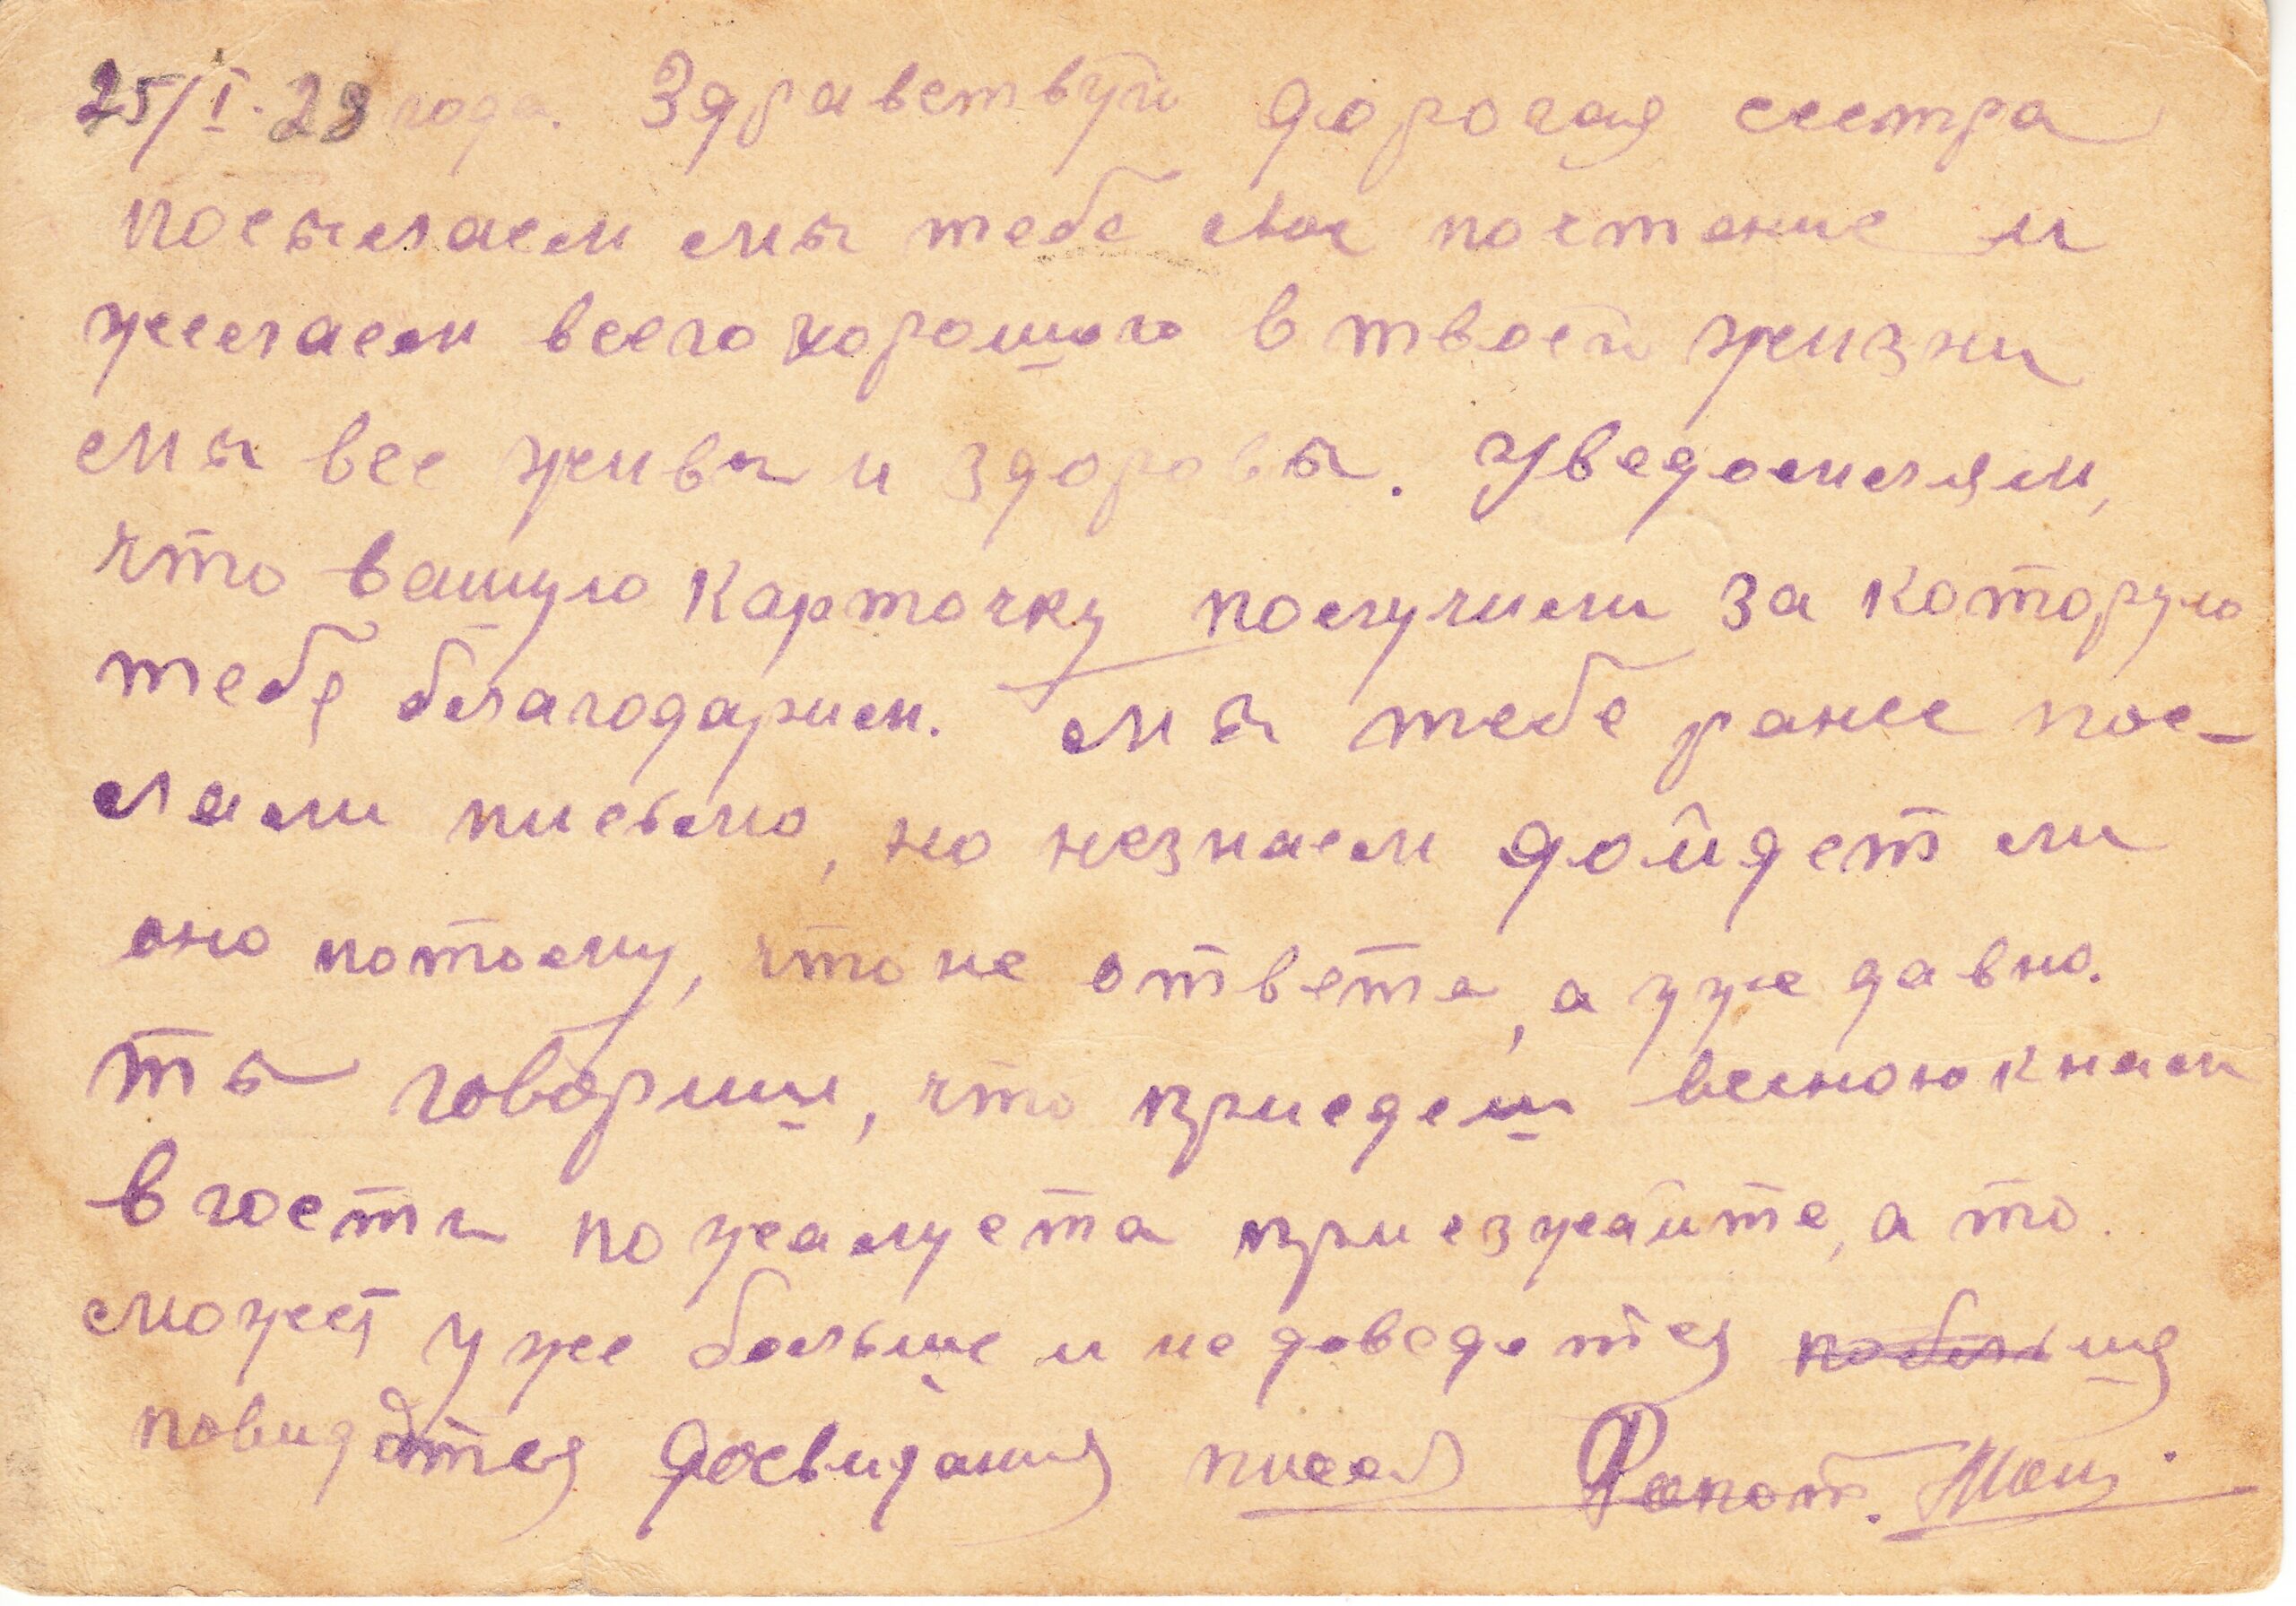 25/I. 28 года. Здравствуй дорогая сестра
посылаем мы тебе свое почтение и
желаем всего хорошого в твоей жизни
мы все живы и здоровы. Уведомляем,
что вашую карточку получили за которую
тебе благодарим. мы тебе ранее пос-
лали письмо, но незнаем дойдет ли
оно потому, что не ответа, а уже давно.
ты говориш, что приедеш весною к нам
в гости пожалуста приезжайте, а то
может уже больше и не доведется
повидатся досвидания писал